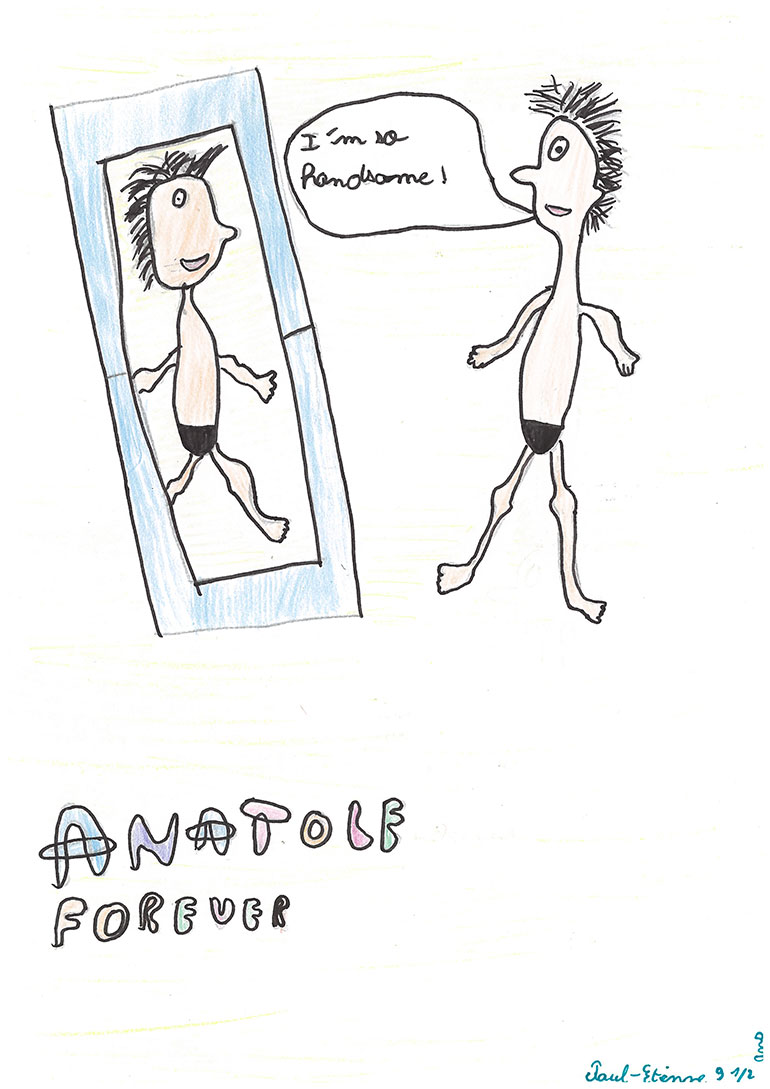 I'm so
handsome!
ANATOLE
FOREVER
Paul-Etienne 9 1/2 ans